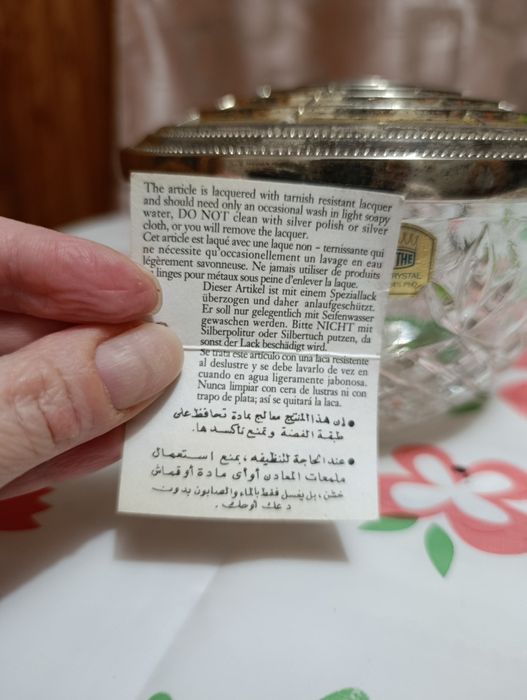 The article is lacquered with tarnish resistant lacquer
and should need only an occasional wash in light soapy
water, DO NOT clean with silver polish or silver
cloth, or you will remove the lacquer.
Cet article est laqué avec une laque non - ternissante qui
ne nécessite qu'occasionellement un lavage en eau
légèrement savonneuse. Ne jamais utiliser de produits
linges pour métaux sous peine d'enlever la laque.
Dieser Artikel ist mit einem Speziallack
überzogen und daher anlaufgeschützt.
Er soll nur gelegentlich mit Seifenwasser
gewaschen werden. Bitte NICHT mit
Silberpolitur oder Silbertuch putzen, da
sonst der Lack beschädigt wird.
Se trata este artículo con una laca resistente
al deslustre y se debe lavarlo de vez en
cuando en agua ligeramente jabonosa.
Nunca limpiar con cera de lustras ni con
trapo de plata; así se quitará la laca.
● إن هذا المنتج معالج بمادة تحافظ على
طبقة الفضة وتمنع تأكسدها.
● عند الحاجة للتنظيفه، يمنع استعمال
ملمعات المعادن أو أي مادة أو قماش
خشن، بل يغسل فقط بالماء والصابون بدون
دعك أو حك.
THE
CRYSTAL